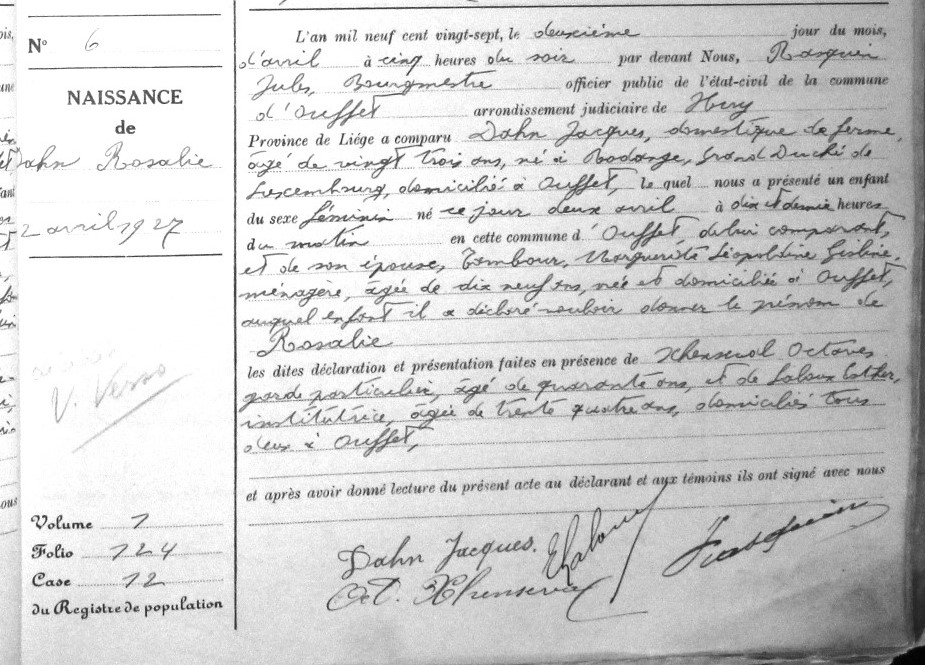 N° 6
NAISSANCE
de
Dahn Rosalie
2 avril 1927
V. Verso
Volume 1
Folio 124
Case 12
du Registre de population
L'an mil neuf cent vingt-sept, le deuxième jour du mois,
d'avril à cinq heures du soir par devant Nous, Rasquin
Jules, Bourgmestre officier public de l'état-civil de la commune
d'Ouffet arrondissement judiciaire de Huy
Province de Liége a comparu Dahn Jacques, domestique de ferme,
âgé de vingt trois ans, né à Rodange, Grand Duché de
Luxembourg, domicilié à Ouffet, le quel nous a présenté un enfant
du sexe féminin né ce jour deux avril à dix et demie heures
du matin en cette commune d'Ouffet de lui comparant,
et de son épouse, Tambour, Marguerite Léopoldine Gisline,
ménagère, âgée de dix neuf ans, née et domiciliée à Ouffet,
auquel enfant il a déclaré vouloir donner le prénom de
Rosalie
les dites déclaration et présentation faites en présence de Xhenseval Octave,
garde particulier, âgé de quarante ans, et de Laloux Esther,
institutrice, âgée de trente quatre ans, domiciliés tous
deux à Ouffet,
et après avoir donné lecture du présent acte au déclarant et aux témoins ils ont signé avec nous
Dahn Jacques. E Laloux
Oct. Xhenseval